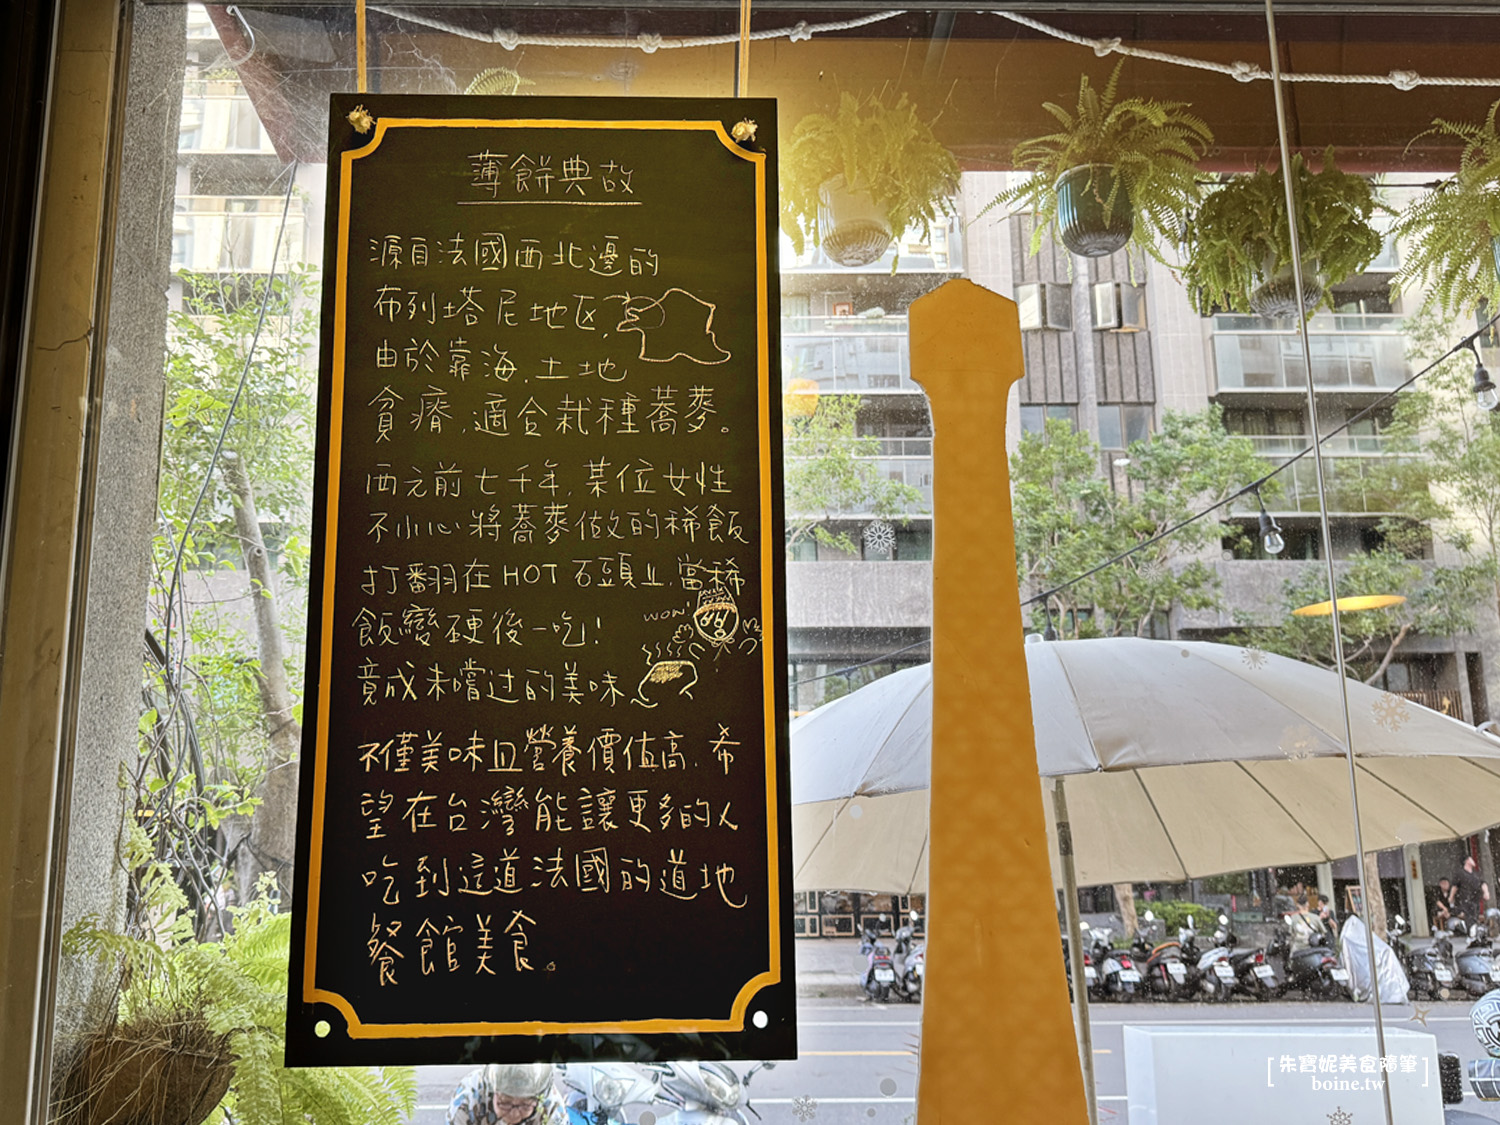 薄餅典故
源自法國西北邊的
布列塔尼地区,
由於靠海,土地
貧瘠,適合栽種蕎麥。
西元前七千年,某位女性
不小心將蕎麥做的稀飯
打翻在HOT石頭上,當稀
飯變硬後一吃!
WOW!
竟成未嚐过的美味~
不僅美味且營養價值高,希
望在台灣能讓更多的人
吃到這道法國的道地
餐館美食。
[朱寶妮美食隨筆]
boine.tw